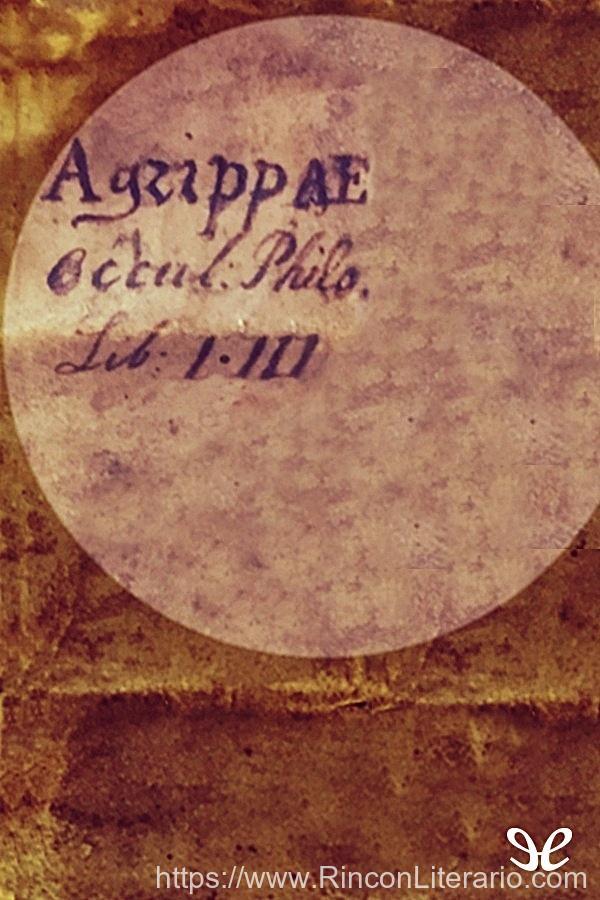 AgrippAE
Occul. Philo.
Lib. I.III
https://www.RinconLiterario.com